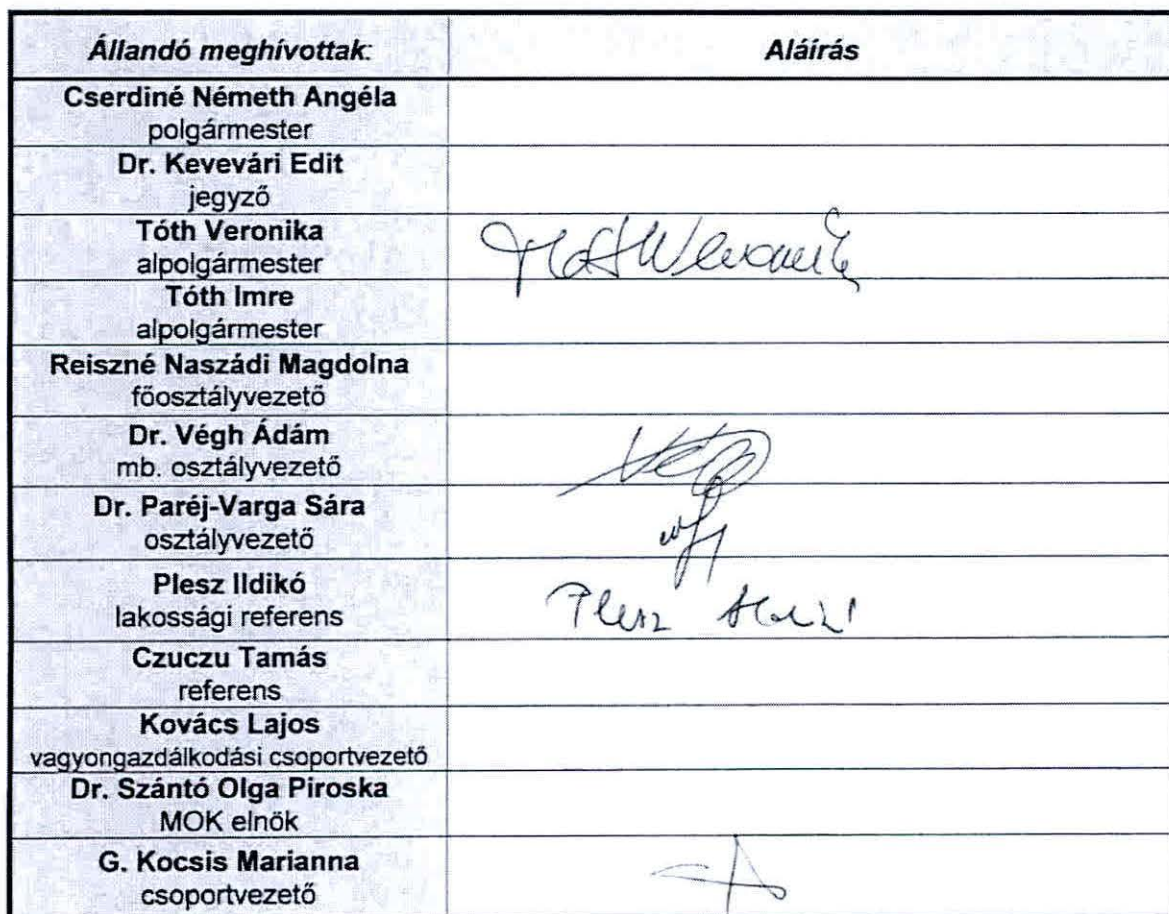 Állandó meghívottak: Aláírás
Cserdiné Németh Angéla
polgármester
Dr. Kevevári Edit
jegyző
Tóth Veronika
alpolgármester
Tóth Imre
alpolgármester
Reiszné Naszádi Magdolna
főosztályvezető
Dr. Végh Ádám
mb. osztályvezető
Dr. Paréj-Varga Sára
osztályvezető
Plesz Ildikó
lakossági referens
Plesz
Czuczu Tamás
referens
Kovács Lajos
vagyongazdálkodási csoportvezető
Dr. Szántó Olga Piroska
MOK elnök
G. Kocsis Marianna
csoportvezető